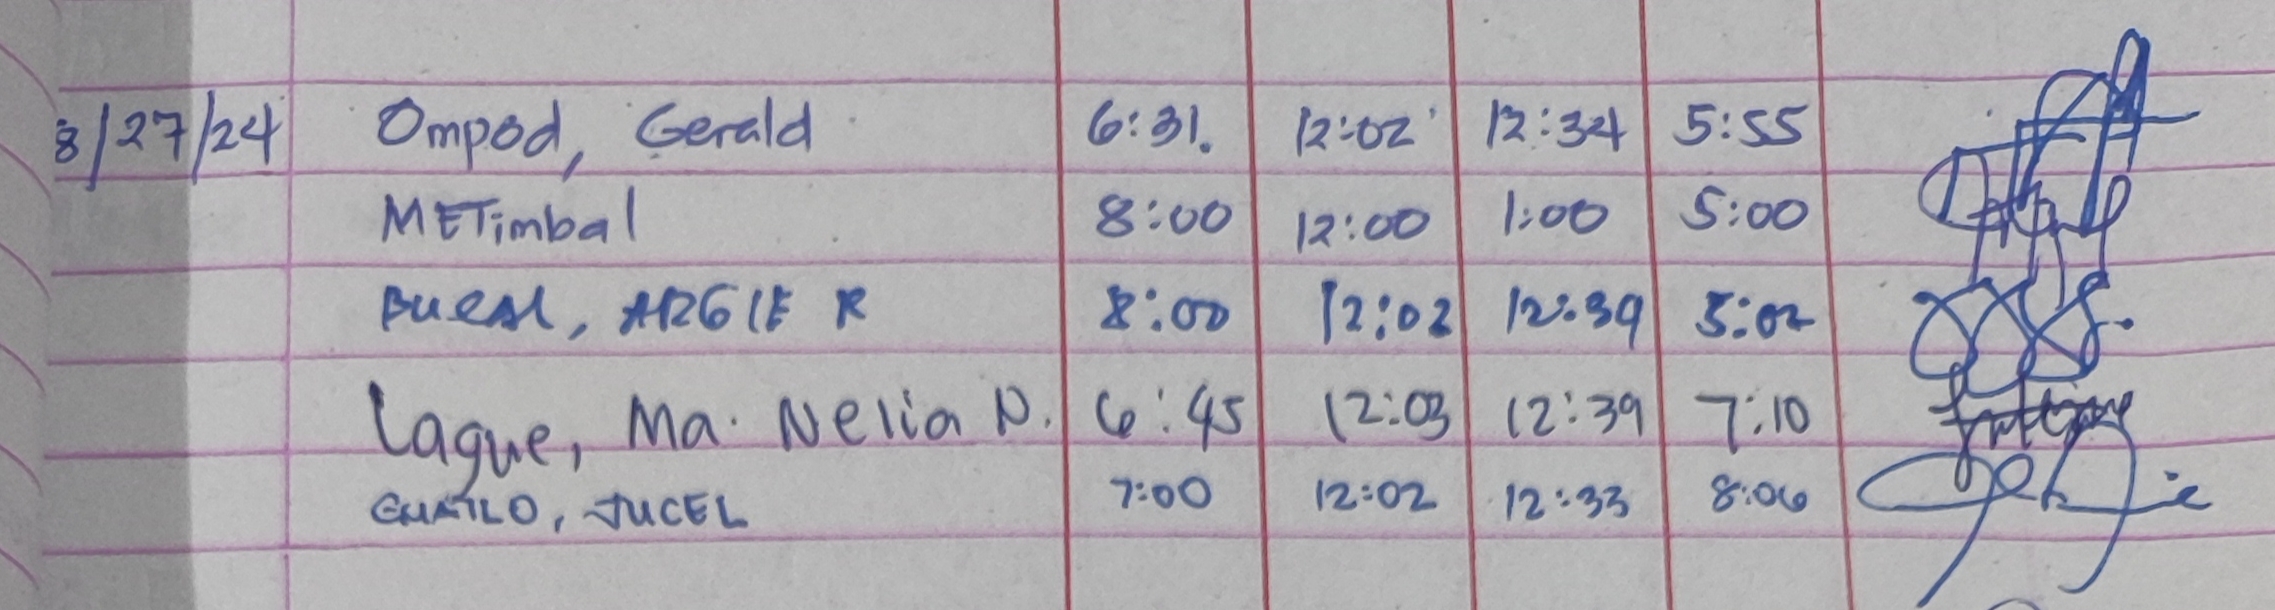 8/27/24 Ompod, Gerald 6:31. 12:02 12:34 5:55
METimbal 8:00 12:00 1:00 5:00
ARGIE R 8:00 12:02 12:39 5:02
Laque, Ma. Nelia N. 6:45 12:03 12:39 7:10
JUCEL 7:00 12:02 12:33 8:06